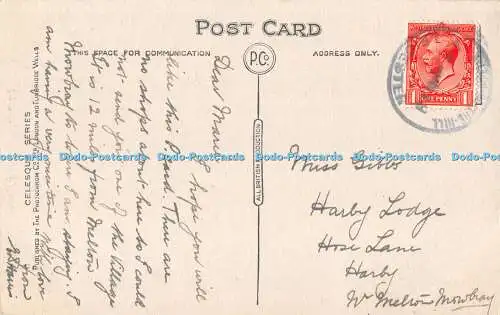 POST CARD
THIS SPACE FOR COMMUNICATION
P.Co
ADDRESS ONLY.
Dear Marie, I hope you will
like this P.Card. There are
no shops about here so I could
not send you one of the Village
It is 12 miles from Melton
Mowbray to where I am staying. I
am having a very nice time with love
from
CELESQUE SERIES
PUBLISHED BY THE PHOTOCHROM CO. LTD. LONDON AND TUNBRIDGE WELLS
ALL BRITISH PRODUCTION
Miss Gibbs
Harby Lodge
Hose Lane
Harby
Nr Melton Mowbray
ONE PENNY
1 1
HILL
Dodo-Postcards Dodo-Postcards Dodo-Postcards Dodo-Postcards Dodo-Postcards